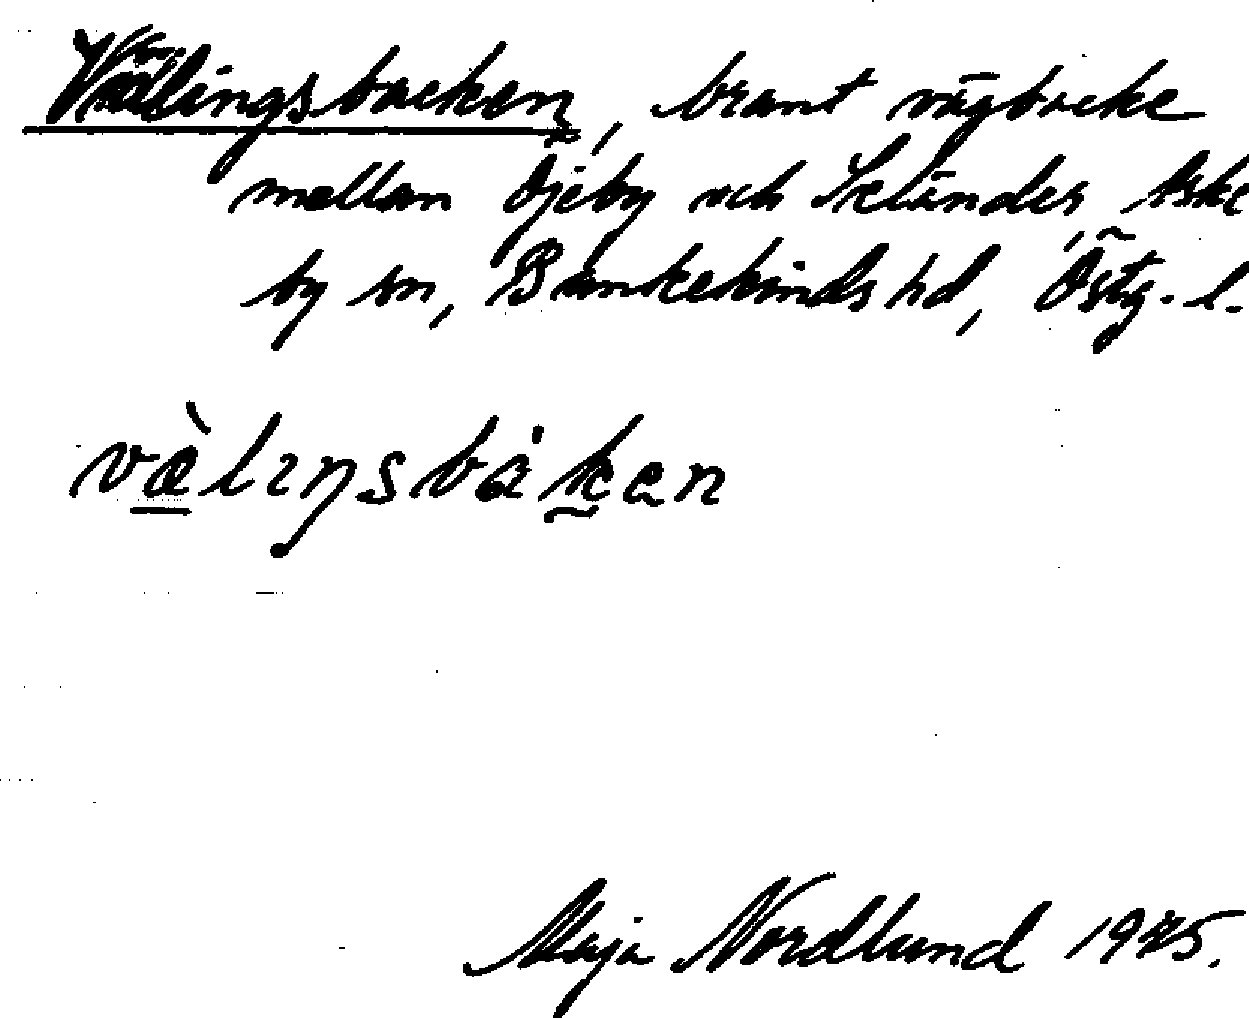 Vällingsbacken, brant vägbacke
mellan Öjeby och Selånder, Aske
by sn, Bankekinds hd, Östg. l.
vælıŋsbakan
Maja Nordlund 1925.